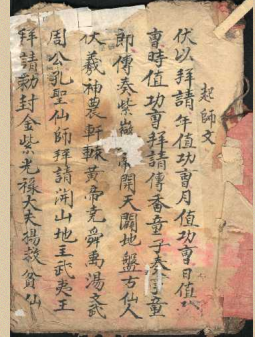 起師文
伏以拜請年值功曹月值功曹日值功
曹時值功曹拜請傳香童子奏事童
即傳奏紫微 帝開天闢地盤古仙人
伏羲神農軒轅黃帝堯舜禹湯文武
周公孔聖仙師拜請開山地主武夷王
拜請勅封金紫光祿大夫楊救貧仙